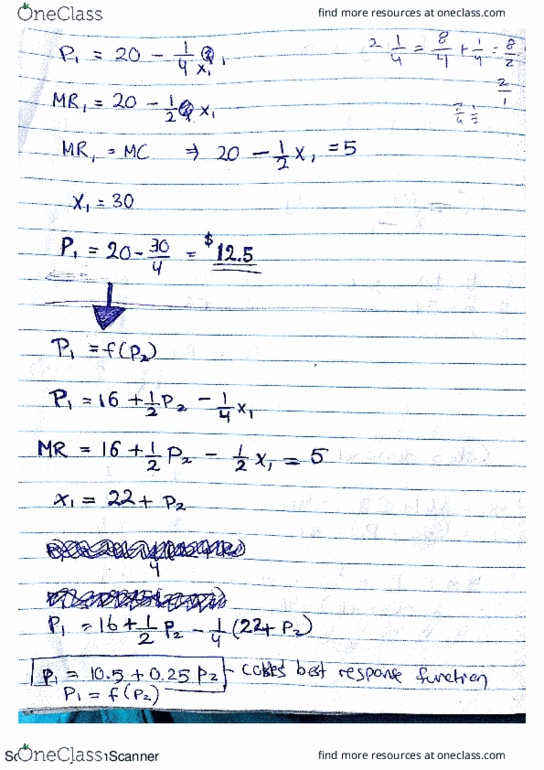 OneClass find more resources at oneclass.com
P₁ = 20 - 1/4 x₁
2 1/4 = 8/4 + 1/4 = 8/2
2/1
MR₁ = 20 - 1/2 x₁
MR₁ = MC ⇒ 20 - 1/2 x₁ = 5
x₁ = 30
P₁ = 20 - 30/4 = $12.5
P₁ = f(P₂)
P₁ = 16 + 1/2 P₂ - 1/4 x₁
MR = 16 + 1/2 P₂ - 1/2 x₁ = 5
x₁ = 22 + P₂
P₁ = 16 + 1/2 P₂ - 1/4 (22 + P₂)
P₁ = 10.5 + 0.25 P₂ - cokes best response function
P₁ = f(P₂)
OneClass Scanner find more resources at oneclass.com